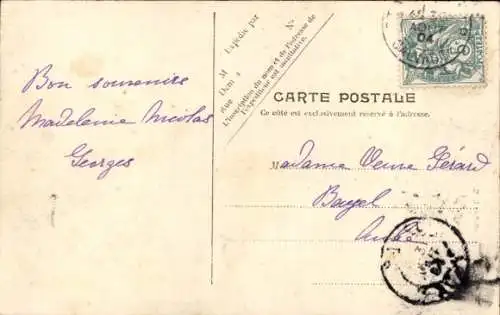 Bon souvenir
Madeleine Nicolas
Georges
M
Expédié par
Nº
Dem
rue
L'inscription du nom et de l'adresse de
l'expéditeur est facultative.
CARTE POSTALE
Ce côté est exclusivement réservé à l'adresse.
Madame Veuve Gérard
Bayel
Aube
04